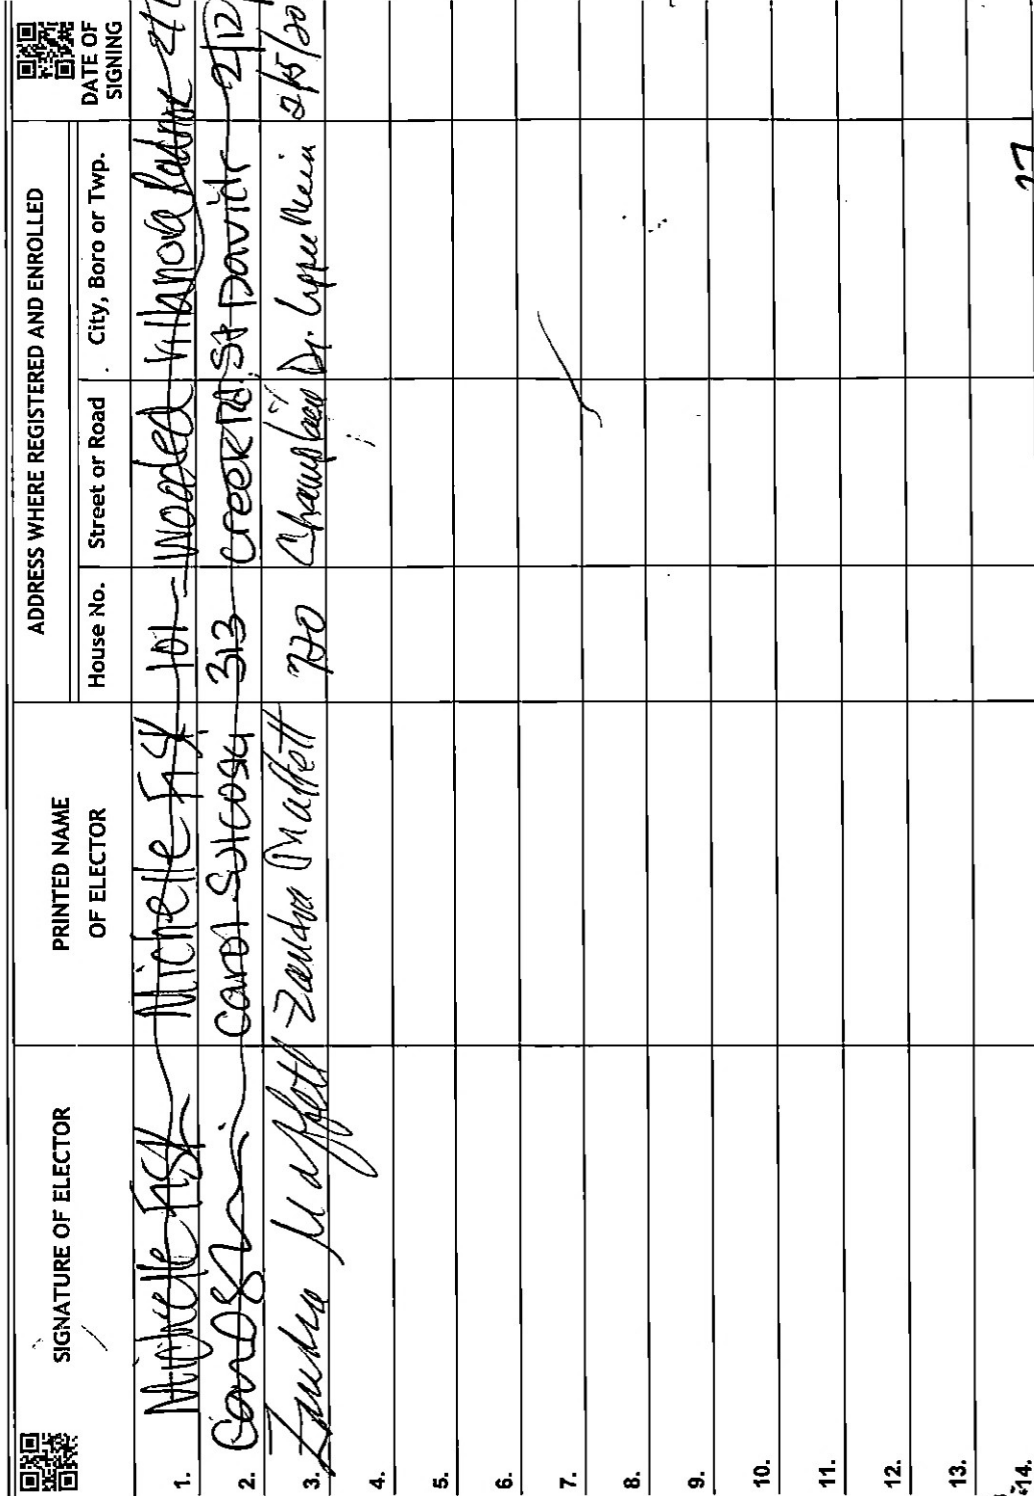 SIGNATURE OF ELECTOR PRINTED NAME OF ELECTOR ADDRESS WHERE REGISTERED AND ENROLLED DATE OF SIGNING
House No. Street or Road City, Boro or Twp.
1. Michelle Fisk Michelle Fisk 101 Wooded Villanova Radnor
2. Carol 313 Creek Rd. St Davids 2/12
3. Maffett Zandra Maffett 720 Champlain Dr. Upper Merion 2/15/20
4.
5.
6.
7.
8.
9.
10.
11.
12.
13.
14.